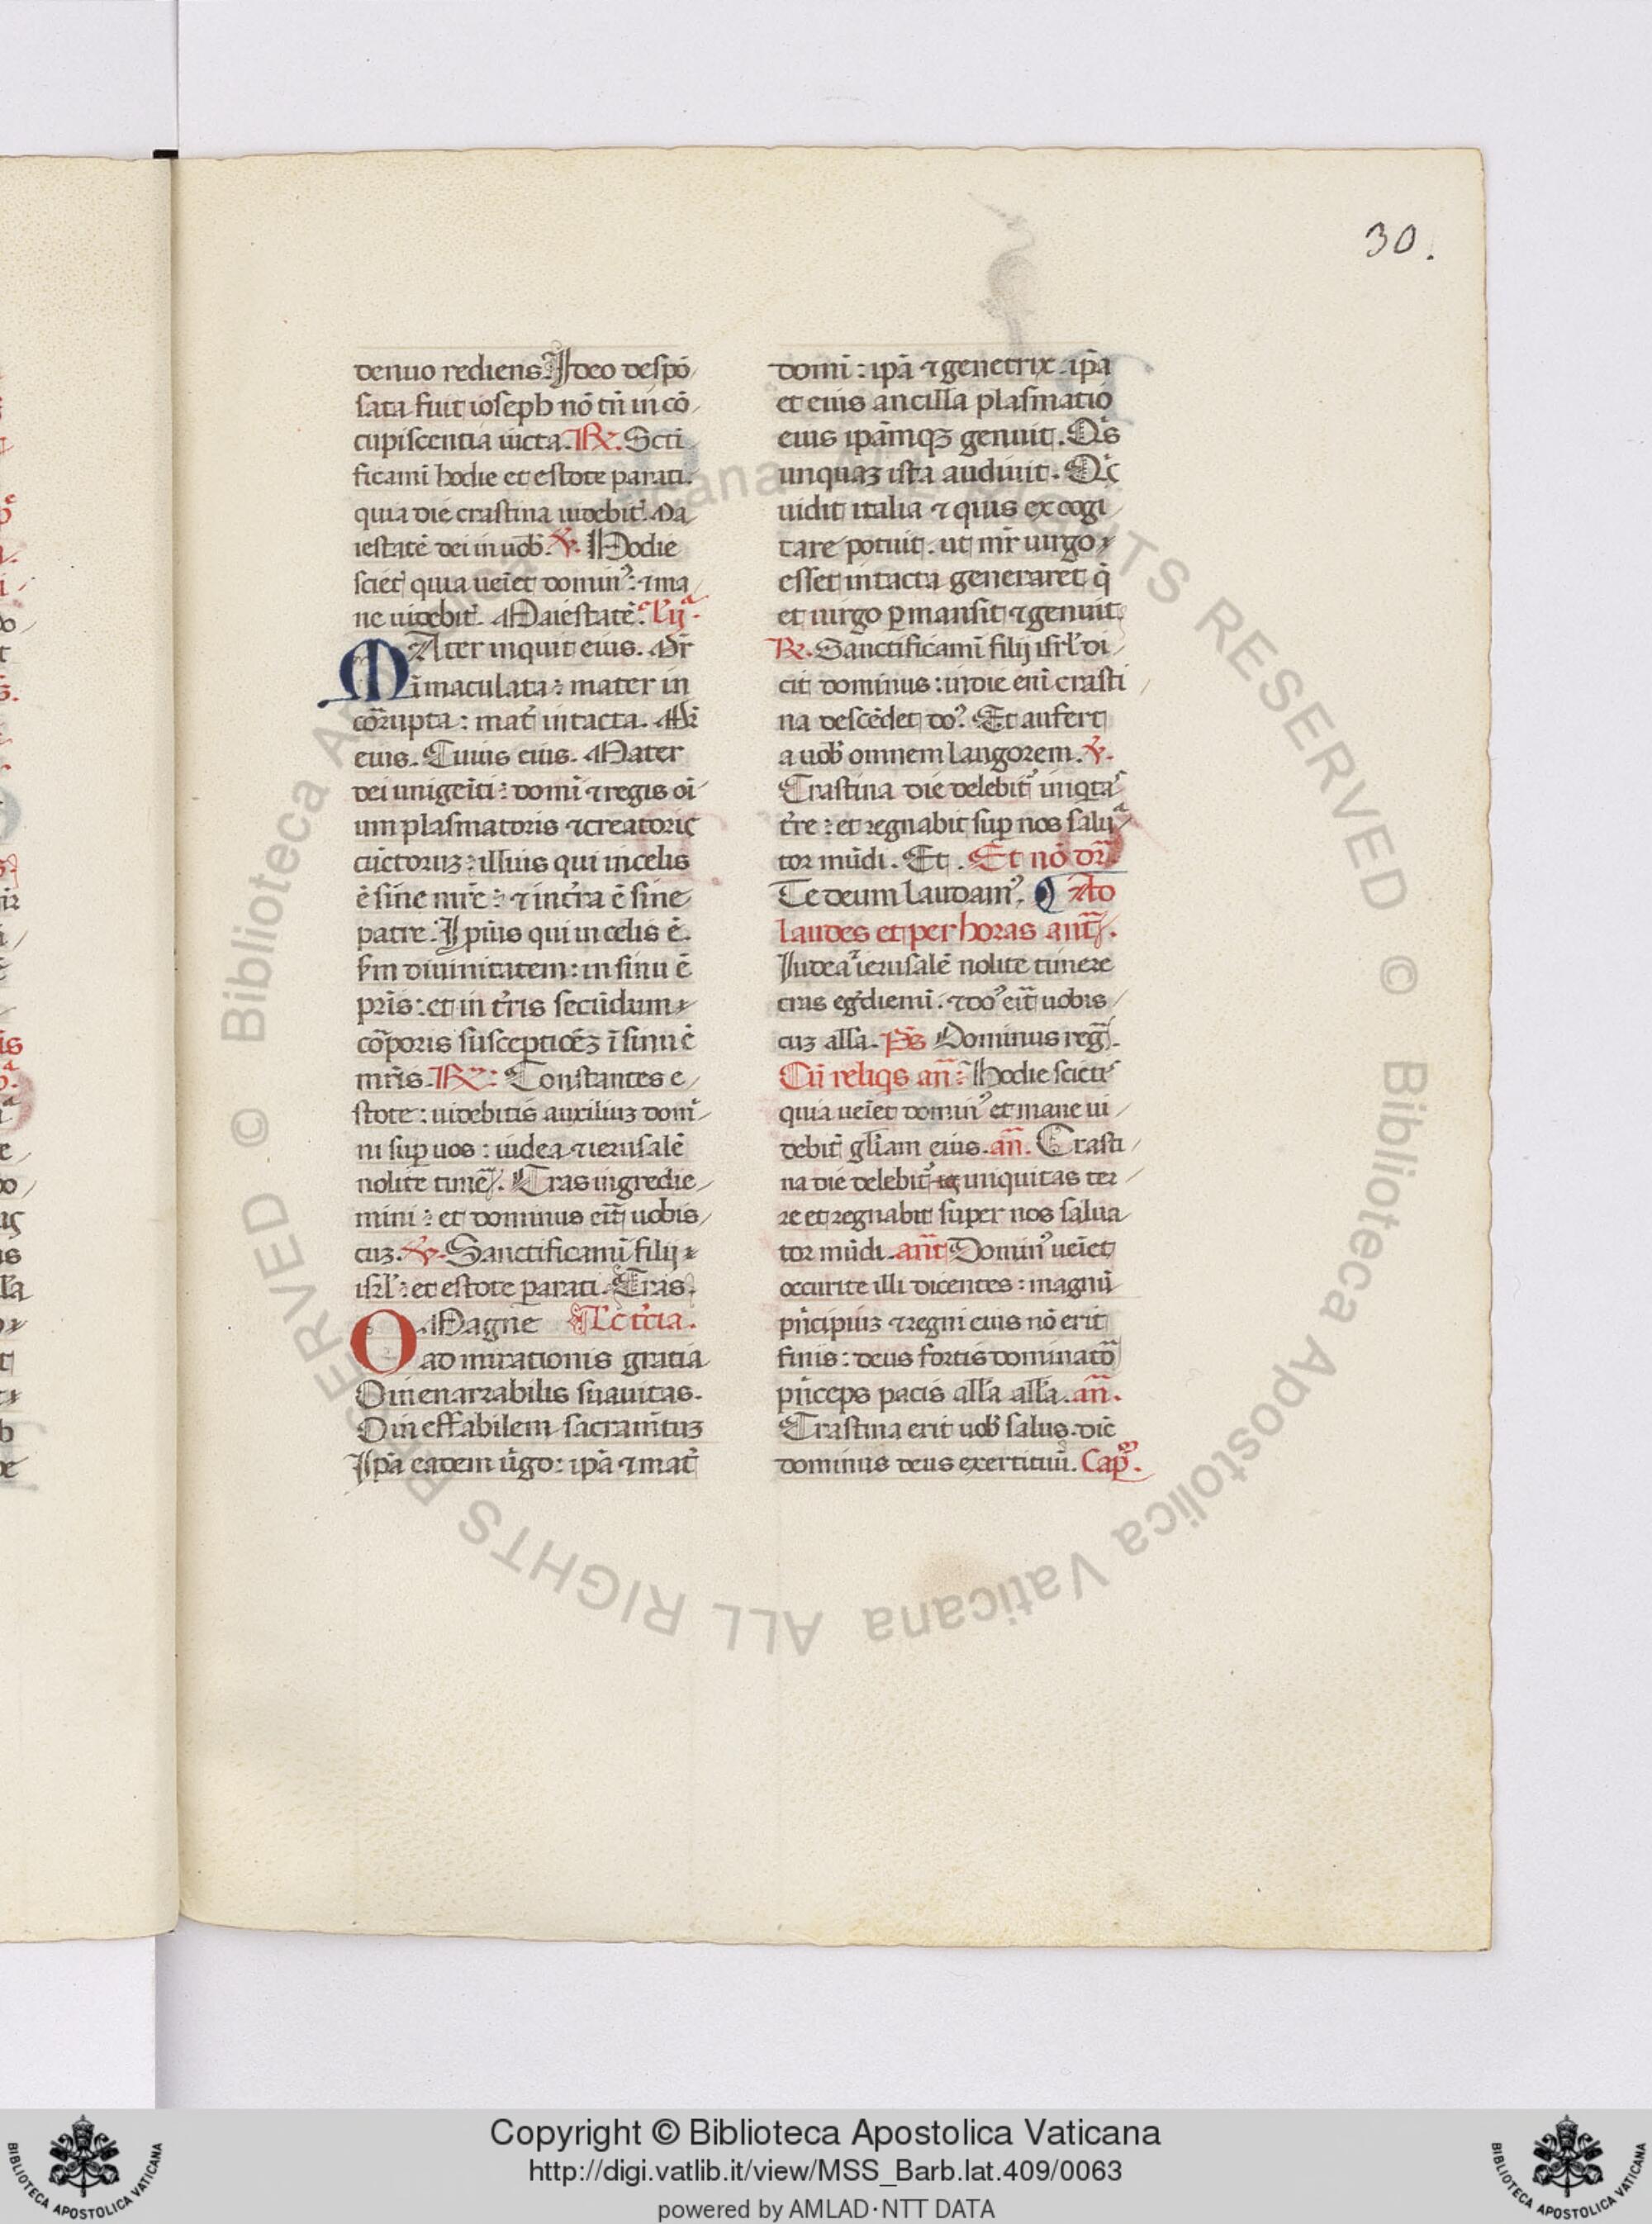 30.
denuo rediens. Ideo despō
sata fuit ioseph nō tn̄ in cō
cupiscentia iūcta. R̄. Scti
ficamī hodie et estote parati.
quia die crastina uidebit᷒. Ma
iestatē dei in uob̄. V̄. Hodie
sciet᷒ quia ueīet domin᷒: ⁊ ma
ne uidebit᷒. Maiestatē. l̄ ijᵃ.
MAter inquit eius. Mr̄
īmaculata: mater in
cōrrupta: mat᷒ intacta. Mr̄
eius. Cuius eius. Mater
dei unigeīti: domī ⁊ regis oī
um plasmatoris ⁊ creatoris
cūctoruʒ: illius qui in celis
ē sine mr̄e: ⁊ in tr̄ra ē sine
patre. Ipīus qui in celis ē.
sm̄ diuinitatem: in sinu ē
pr̄is: et in tr̄ris secūdum
cōporis susceptiōēʒ ī sinu ē
mr̄is. R̄: Constantes e
stote: uidebitis auxiliuʒ domī
ni sup uos: iudea ⁊ ierusalē
nolite timē. Cras ingredie
mini: et dominus eīt uobis
cuʒ. V̄. Sanctificamī filij
isrl̄: et estote parati. Cras.
O Magne Lc̄ t̄cia.
admirationis gratia
O inenarrabilis suauitas.
O in effabilem sacram̄tuʒ
Ipā eadem ūgo: ipā ⁊ mat᷒
domī: ipā ⁊ genetrix. ipā
et eius ancilla plasmatio
eius ipāmqʒ genuit. Q̄s
unquaʒ ista audiuit. Q̄s
uidit italia ⁊ quis excogi
tare potuit. ut mr̄ uirgo
esset intacta generaret q̄
et uirgo ꝑmansit ⁊ genuit.
R̄. Sanctificamī filij isrl̄ di
cit dominus: in die enī crasti
na descēdet do᷒. Et aufert
a uob̄ omnem langorem. V̄.
Crastina die delebit᷒ iniqͥtas
t̄re: et regnabit sup nos salua
tor mūdi. Et. Et nō dr̄.
Te deum laudam᷒. ¶ Ad
laudes et per horas ant̄.
Iudea ⁊ ierusalē nolite timere
cras egᷓdiemī. ⁊ do᷒ eīt uobis
cuʒ all̄a. P̄s Dominus reḡ.
Cū reliqͥs an̄: Hodie scietis
quia ueīet domin᷒ et mane ui
debit᷒ gl̄iam eius. an̄. Crasti
na die delebit᷒ iniquitas ter
re et regnabit super nos salua
tor mūdi. ant̄ Domin᷒ ueīet
occurite illi dicentes: magnū
pͥncipiuʒ ⁊ regni eius nō erit
finis: deus fortis dominatō
pͥnceps pacis all̄a all̄a. an̄.
Crastina erit uob̄ salus. dic̄
dominus deus exercituū. Cap̄.
© Biblioteca Apostolica Vaticana ALL RIGHTS RESERVED © Biblioteca Apostolica Vaticana ALL RIGHTS RESERVED
Copyright © Biblioteca Apostolica Vaticana
http://digi.vatlib.it/view/MSS_Barb.lat.409/0063
powered by AMLAD·NTT DATA
BIBLIOTECA APOSTOLICA VATICANA
BIBLIOTECA APOSTOLICA VATICANA